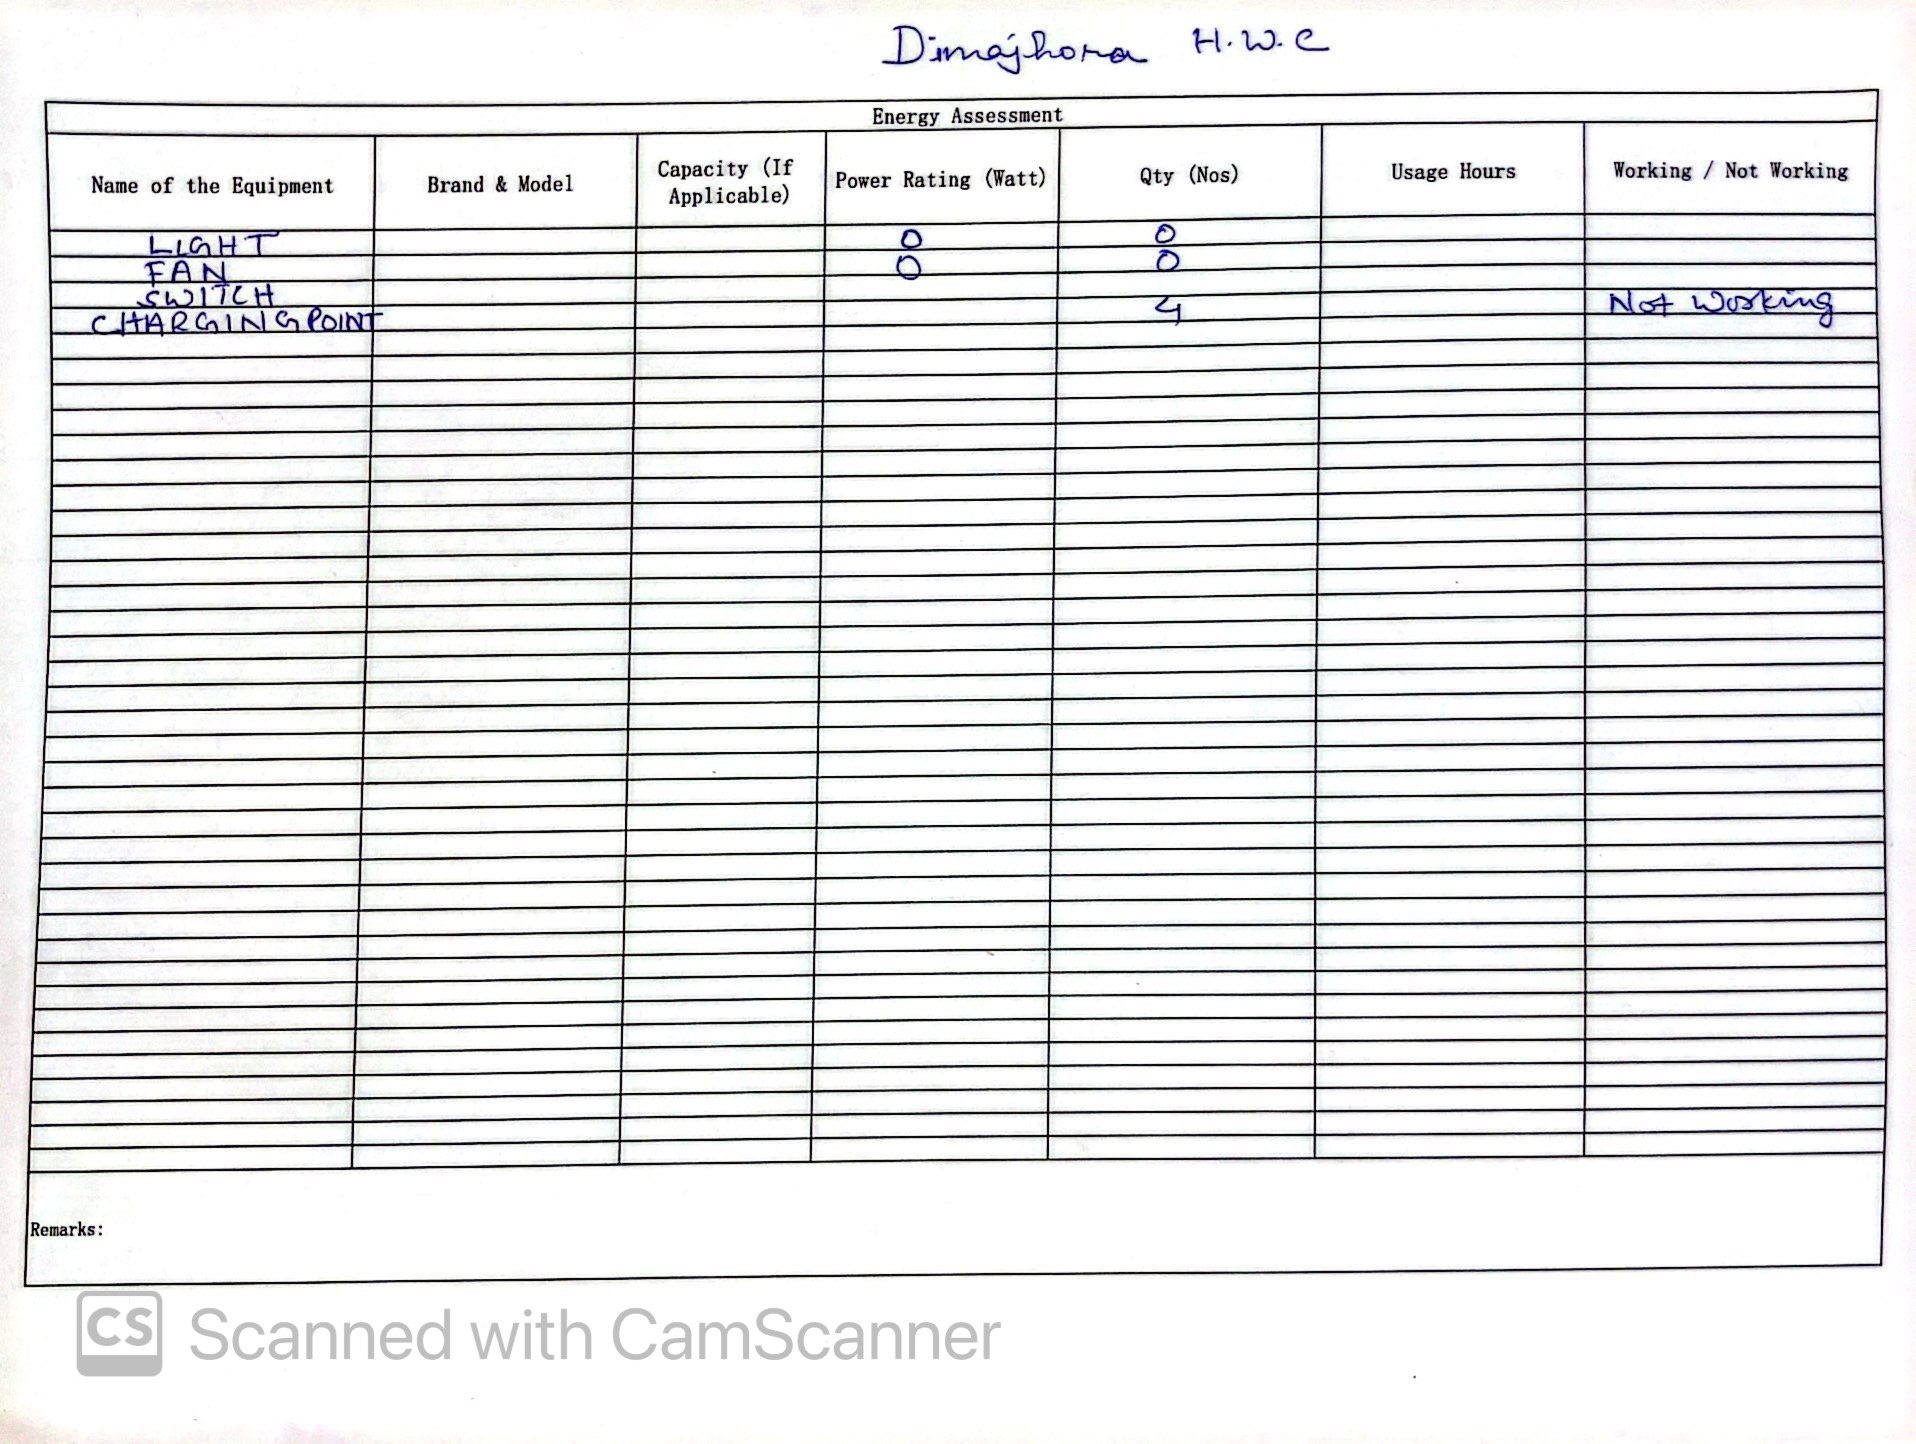 Dimajhora H.W.C
Energy Assessment
Name of the Equipment Brand & Model Capacity (If Applicable) Power Rating (Watt) Qty (Nos) Usage Hours Working / Not Working
LIGHT 0 0
FAN 0 0
SWITCH
CHARGING POINT 4 Not Working
Remarks:
CS Scanned with CamScanner